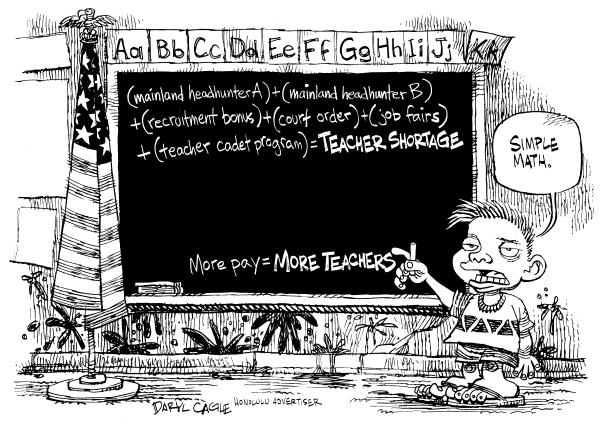 Aa Bb Cc Dd Ee Ff Gg Hh Ii Jj Kk
(mainland headhunter A) + (mainland headhunter B)
+ (recruitment bonus) + (court order) + (job fairs)
+ (teacher cadet program) = TEACHER SHORTAGE
SIMPLE
MATH.
More pay = MORE TEACHERS
DARYL CAGLE HONOLULU ADVERTISER